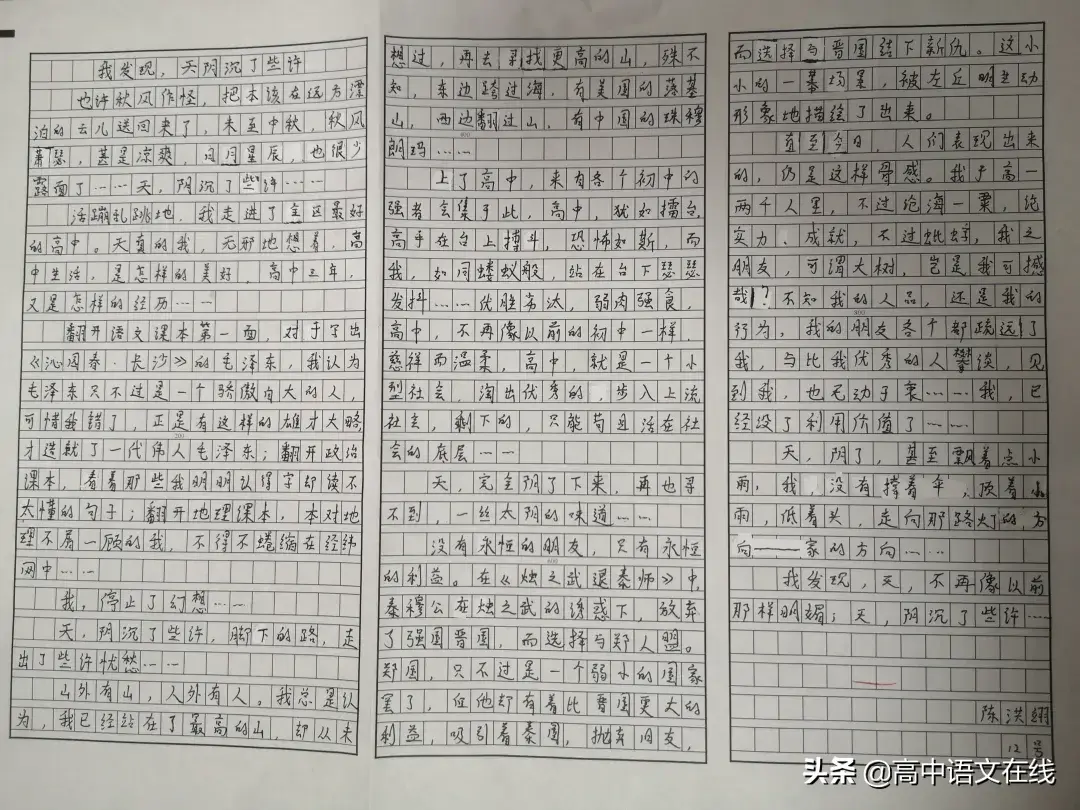 我发现，天阴沉了些许
也许秋风作怪，把本该在远方漂
泊的云儿送回来了，未至中秋，秋风
萧瑟，甚是凉爽，日月星辰，也很少
露面了……天，阴沉了些许……
活蹦乱跳地，我走进了全区最好
的高中。天真的我，无邪地想着，高
中生活，是怎样的美好，高中三年，
又是怎样的经历……
翻开语文课本第一面，对于写出
《沁园春·长沙》的毛泽东，我认为
毛泽东只不过是一个骄傲自大的人，
可惜我错了，正是有这样的雄才大略，
才造就了一代伟人毛泽东；翻开政治
课本，看着那些我明明认得字却读不
太懂的句子；翻开地理课本，本对地
理不屑一顾的我，不得不蜷缩在经纬
网中……
我，停止了幻想……
天，阴沉了些许，脚下的路，走
出了些许忧愁……
山外有山，人外有人。我总是认
为，我已经站在了最高的山，却从未
想过，再去寻找更高的山，殊不
知，东边跨过海，有美国的落基
山，西边翻过山，有中国的珠穆
朗玛……
上了高中，来有各个初中的
强者会集于此，高中，犹如擂台，
高手在台上搏斗，恐怖如斯，而
我，如同蝼蚁般，站在台下瑟瑟
发抖……优胜劣汰，弱肉强食，
高中，不再像以前的初中一样，
慈祥而温柔，高中，就是一个小
型社会，淘出优秀的，步入上流
社会，剩下的，只能苟且活在社
会的底层……
天，完全阴了下来，再也寻
不到，一丝太阳的味道……
没有永恒的朋友，只有永恒
的利益。在《烛之武退秦师》中，
秦穆公在烛之武的诱惑下，放弃
了强国晋国，而选择与郑人盟。
郑国，只不过是一个弱小的国家
罢了，但他却有着比晋国更大的
利益，吸引着秦国，抛弃旧友，
而选择与晋国结下新仇。这小
小的一幕场景，被左丘明生动
形象地描绘了出来。
直至今日，人们表现出来
的，仍是这样骨感。我于高一
两千人里，不过沧海一粟，论
实力、成就，不过蚍蜉，我之
朋友，可谓大树，岂是我可撼
哉？不知我的人品，还是我的
行为，我的朋友各个都疏远了
我，与比我优秀的人攀谈，见
到我，也无动于衷……我，已
经没了利用价值了……
天，阴了，甚至飘着点小
雨，我，没有撑着伞，顶着小
雨，低着头，走向那路灯的方
向——家的方向……
我发现，天，不再像以前
那样明媚；天，阴沉了些许……
陈洪翊
12号
头条 @高中语文在线